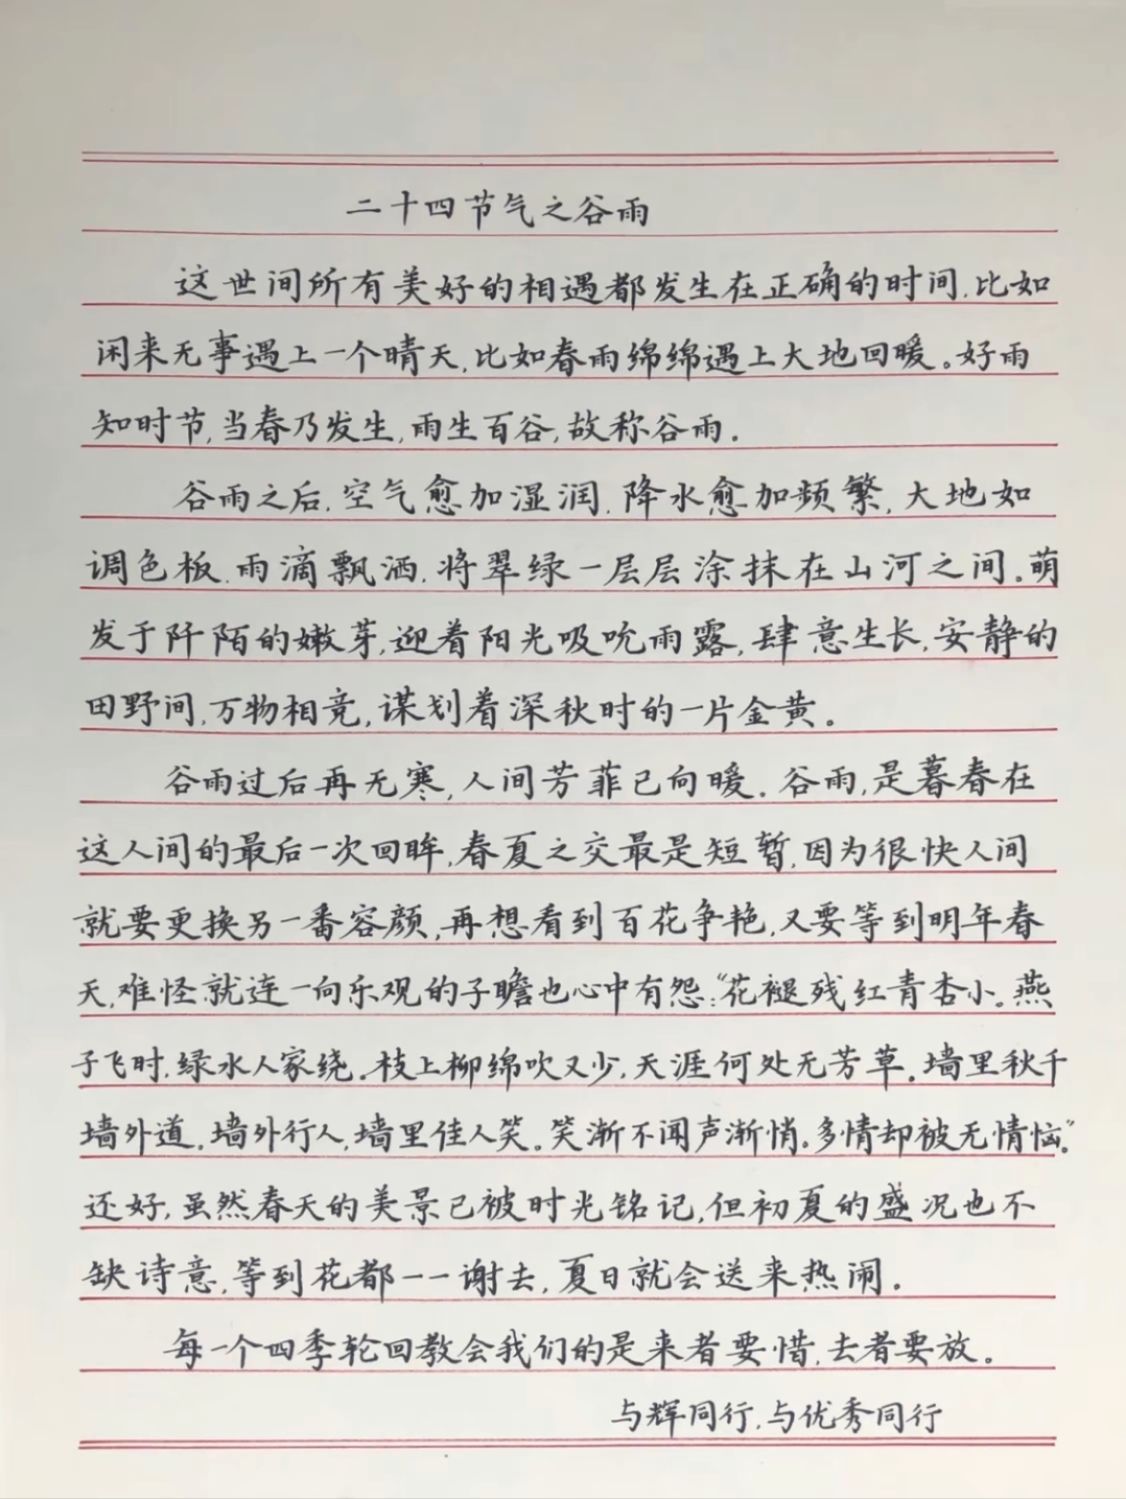 二十四节气之谷雨
这世间所有美好的相遇都发生在正确的时间,比如
闲来无事遇上一个晴天,比如春雨绵绵遇上大地回暖。好雨
知时节,当春乃发生,雨生百谷,故称谷雨。
谷雨之后,空气愈加湿润,降水愈加频繁,大地如
调色板,雨滴飘洒,将翠绿一层层涂抹在山河之间。萌
发于阡陌的嫩芽,迎着阳光吸吮雨露,肆意生长,安静的
田野间,万物相竞,谋划着深秋时的一片金黄。
谷雨过后再无寒,人间芳菲已向暖。谷雨,是暮春在
这人间的最后一次回眸,春夏之交最是短暂,因为很快人间
就要更换另一番容颜,再想看到百花争艳,又要等到明年春
天,难怪就连一向乐观的子瞻也心中有怨:“花褪残红青杏小。燕
子飞时,绿水人家绕。枝上柳绵吹又少,天涯何处无芳草。墙里秋千
墙外道,墙外行人,墙里佳人笑。笑渐不闻声渐悄。多情却被无情恼。”
还好,虽然春天的美景已被时光铭记,但初夏的盛况也不
缺诗意,等到花都一一谢去,夏日就会送来热闹。
每一个四季轮回教会我们的是来者要惜,去者要放。
与辉同行,与优秀同行